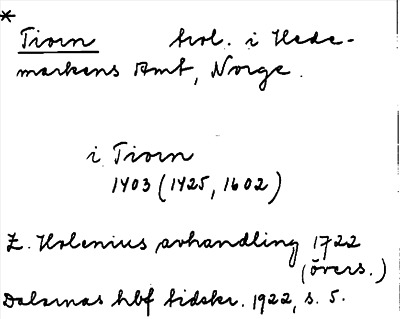 *
Tiorn trol. i Hede-
markens Amt, Norge.
i Tiorn
1403 (1425, 1602)
Z. Holenius avhandling 1722
(övers.)
Dalarnas hbf tidskr. 1922, s. 5.